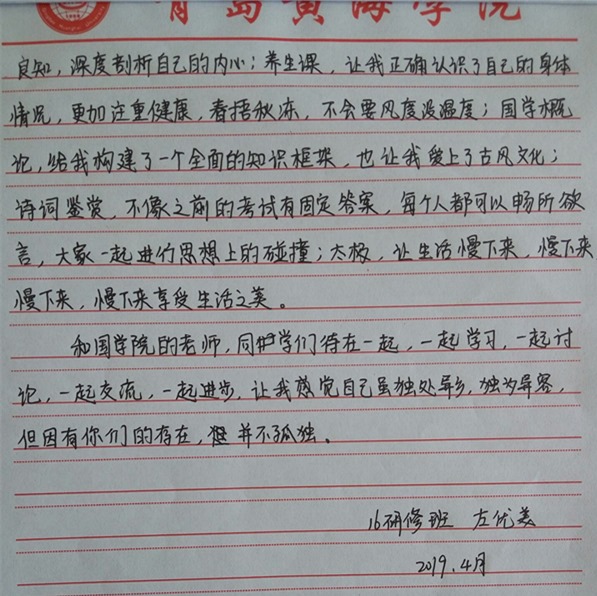 青岛黄海学院
良知，深度剖析自己的内心；养生课，让我正确认识了自己的身体
情况，更加注重健康，春捂秋冻，不会要风度没温度；国学概
论，给我构建了一个全面的知识框架，也让我爱上了古风文化；
诗词鉴赏，不像之前的考试有固定答案，每个人都可以畅所欲
言，大家一起进行思想上的碰撞；太极，让生活慢下来，慢下来
慢下来，慢下来享受生活之美。
和国学院的老师，同学们待在一起，一起学习，一起讨
论，一起交流，一起进步，让我感觉自己虽独处异乡，独为异客，
但因有你们的存在，并不孤独。
16研修班 左优美
2019.4月